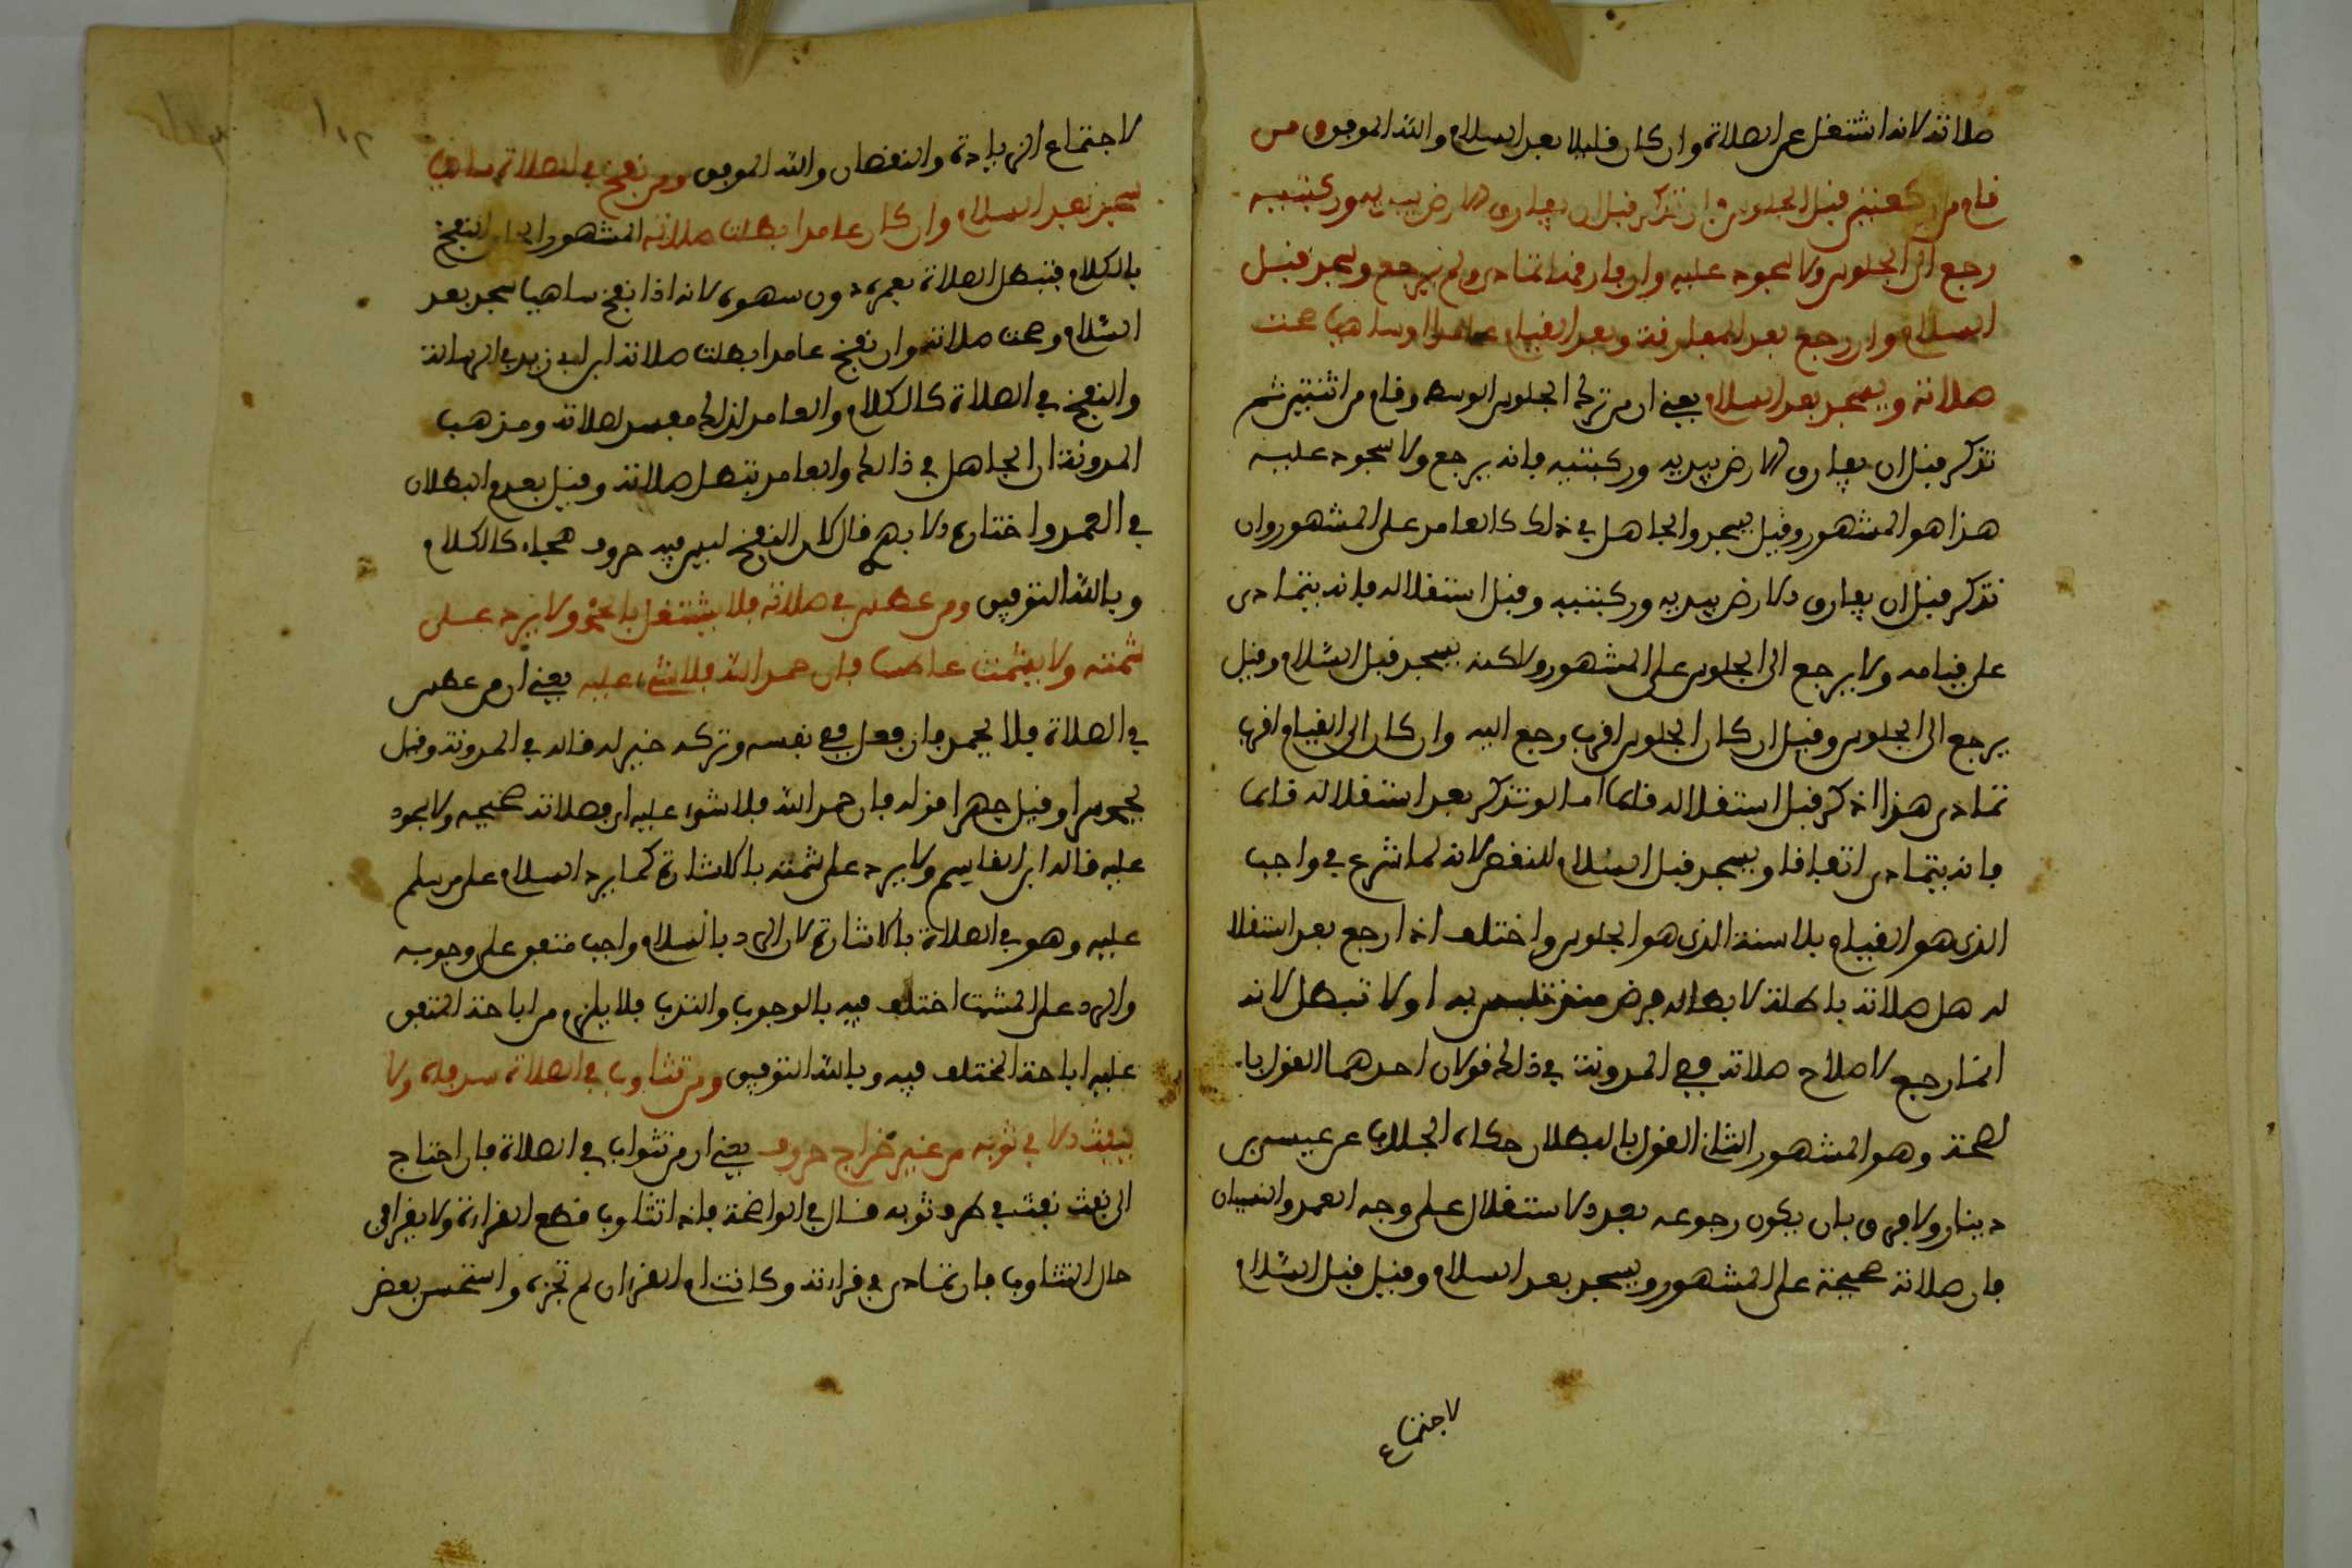 صلاته لانه اشتغل عن الصلاة وان كان قليلا بعد السلام والله الموفق ومن
قام من ركعتين قبل الجلوس فان تذكر قبل ان يفارق الارض بيديه وركبتيه
رجع الى الجلوس ولا سجود عليه وان فارقها تمادى ولم يرجع وسجد قبل
السلام وان رجع بعد المفارقة وبعد القيام عامدا او ساهيا صحت
صلاته ويسجد بعد السلام يعني ان من ترك الجلوس الوسط وقام من اثنتين ثم
تذكر قبل ان يفارق الارض بيديه وركبتيه فانه يرجع ولا سجود عليه
هذا هو المشهور وقيل يسجد والجاهل في ذلك كالعامد على المشهور وان
تذكر قبل ان يفارق الارض بيديه وركبتيه وقبل استقلاله فانه يتمادى
على قيامه ولا يرجع الى الجلوس على المشهور ولاكنه يسجد قبل السلام وقيل
يرجع الى الجلوس وقيل ان كان الجلوس اقرب رجع اليه وان كان الى القيام اقرب
تمادى هذا اذ كر قبل استقلاله قائما اما لو تذكر بعد استقلاله قائما
فانه يتمادى اتفاقا ويسجد قبل السلام للنقص لانه لما شرع في واجب
الذي هو القيام بلا سنة الذي هو الجلوس واختلف اذا رجع بعد استقلا
له هل صلاته باطلة لابطاله فرض تلبس به او لا تبطل لانه
انما رجع لاصلاح صلاته ففي المدونة في ذالك قولان احدهما القول با
لصحة وهو المشهور الثاني القول بالبطلان حكاه الجلاب عن عيسى بن
دينار ولا فرق بان يكون رجوعه بعد الاستقلال على وجه العمد والنسيان
فان صلاته صحيحة على المشهور ويسجد بعد السلام وقيل قبل السلام
لاجتماع
لاجتماع الزيادة والنقصان والله الموفق ومن نفخ في الصلاة ساهيا
سجد بعد السلام وان كان عامدا بطلت صلاته المشهور الحاق النفخ
بالكلام فتبطل الصلاة بعمده دون سهوه لانه اذا نفخ ساهيا سجد بعد
السلام وصحت صلاته وان نفخ عامدا بطلت صلاته ابن ابي زيد في الرسالة
والنفخ في الصلاة كالكلام والعامد لذالك مفسد لصلاته ومذهب
المدونة ان الجاهل في ذالك والعامد تبطل صلاته وقيل بعدم البطلان
في العمد واختاره الابهري قال لان النفخ ليس فيه حروف هجاء كالكلام
وبالله التوفيق ومن عطس في صلاته فلا يشتغل بالحمد ولا يرد على
شمته ولا يشمت عاطسا فان حمد الله فلا شيء عليه يعني ان من عطس
في الصلاة فلا يحمد فان فعل ففي نفسه وتركه خير له قاله في المدونة وقيل
يحمد سرا وقيل جهرا فان حمد الله فلا شيء عليه اي فصلاته صحيحة ولا سجود
عليه قاله ابن القاسم ولا يرد على شمته بالاشارة كما يرد السلام على من سلم
عليه وهو في الصلاة بالاشارة لان الرد بالسلام واجب متفق على وجوبه
والرد على المشمت اختلف فيه بالوجوب والندب فلا يلزم من اباحة المتفق
عليه اباحة المختلف فيه وبالله التوفيق ومن تثاوب في الصلاة سد فاه ولا
ينفث الا في ثوبه من غير اخراج حروف يعني ان من تثواب في الصلاة فان احتاج
الى نفث نفث في طرف ثوبه قال في الواضحة فاذا تثاوب قطع القراءة ولا يقرا في
حال التثاوب فان تمادى في قراءته وكانت ام القران لم تجزه واستحسن بعض